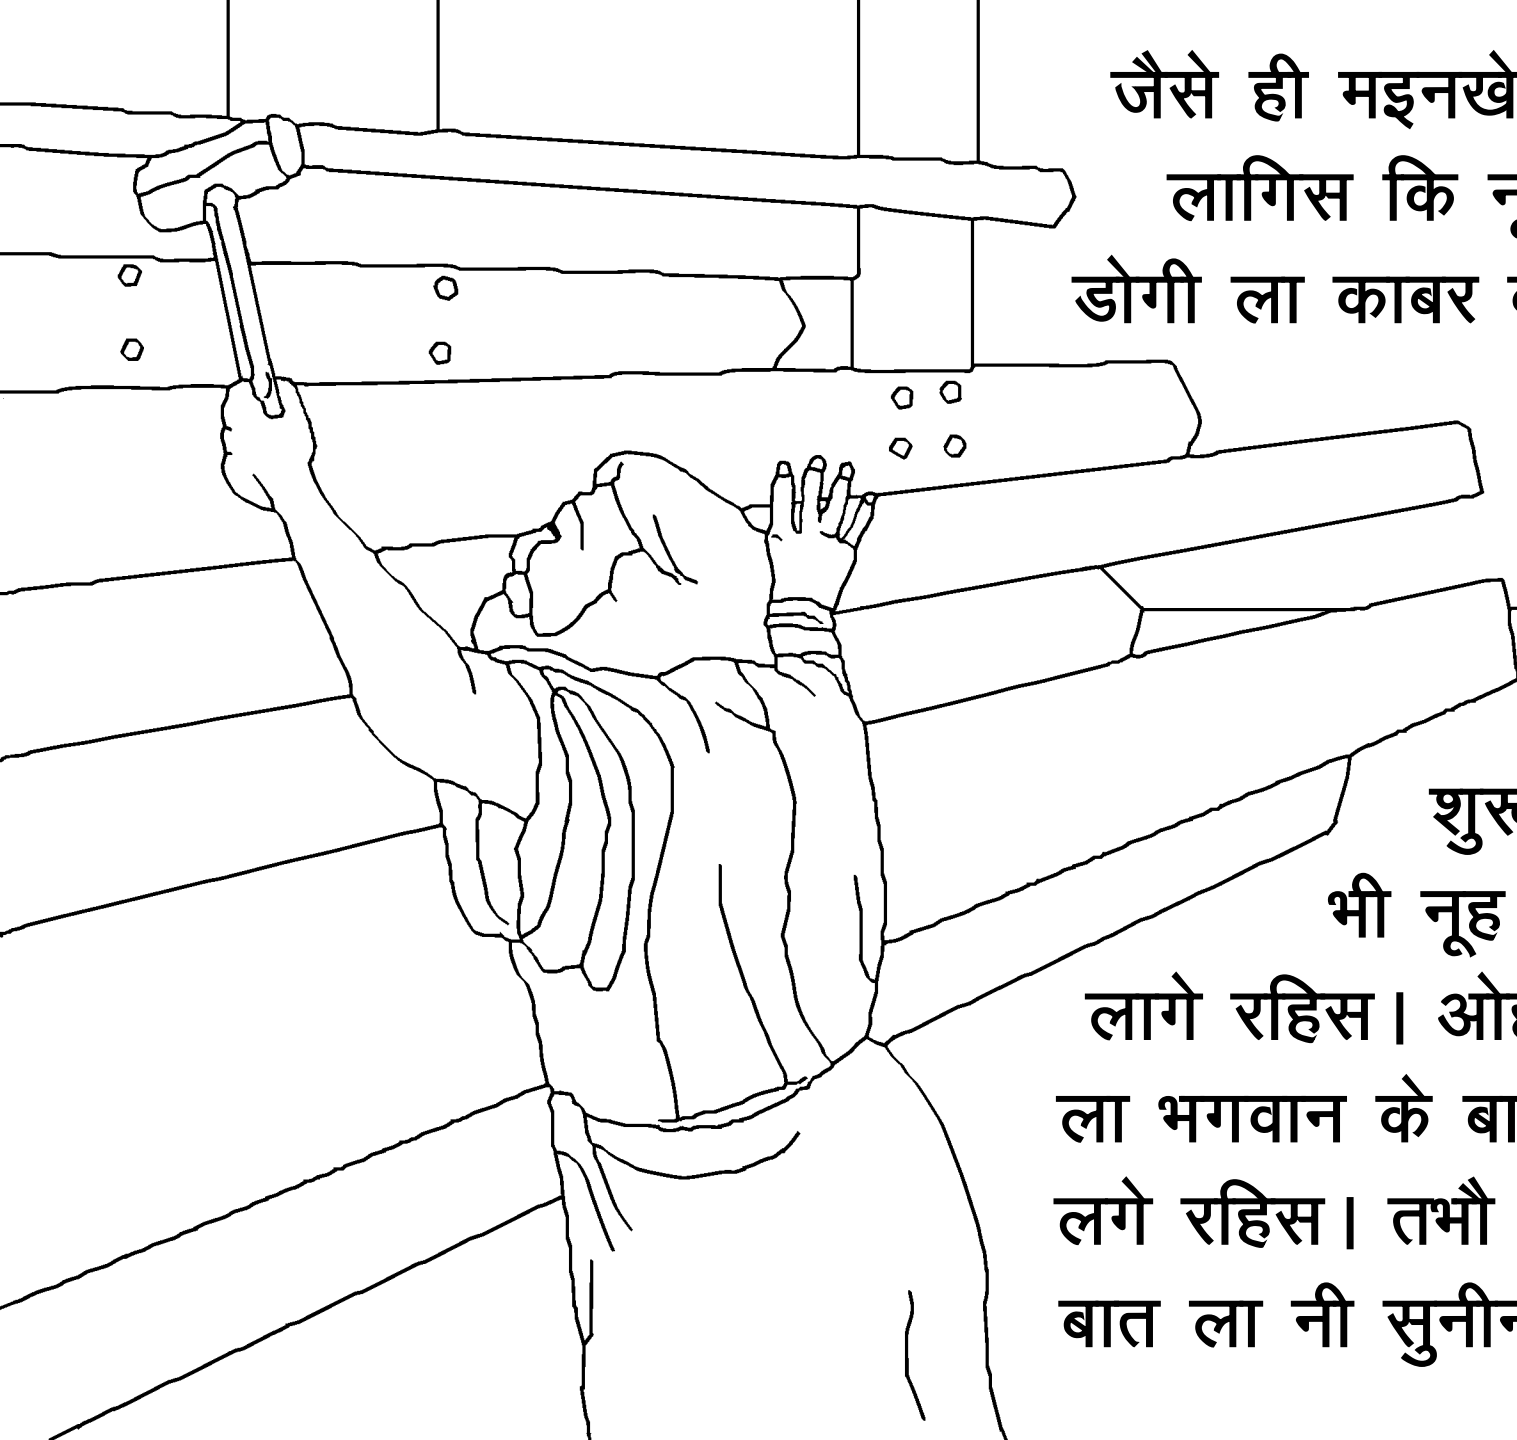 जैसे ही मइनखे
लागिस कि
डोगी ला काबर
भी नूह
लागे रहिस।
ला भगवान के
लगे रहिस। तभौ
बात ला नी